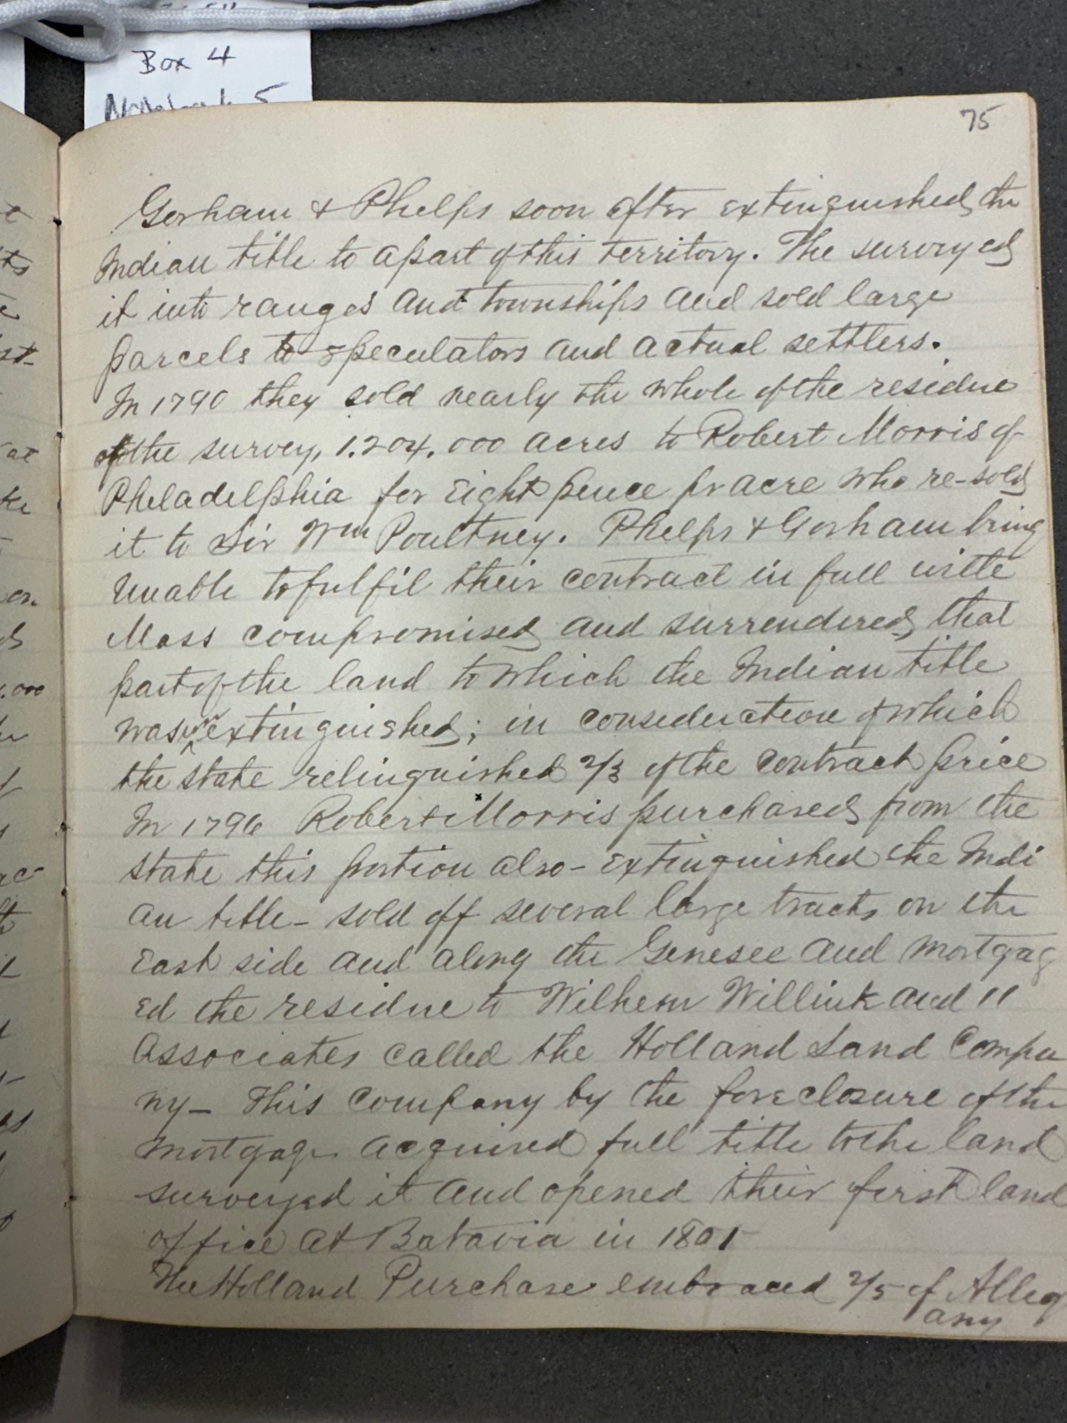 Box 4
Notebook 5
75
Gorham & Phelps soon after extinguished the
Indian title to a part of this territory. The surveyed
it into ranges and townships and sold large
parcels to speculators and actual settlers.
In 1790 they sold nearly the whole of the residue
of the survey, 1.204.000 acres to Robert Morris of
Pheladelphia for Eight pence pr acre who re-sold
it to Sir Wm Poultney. Phelps & Gorham being
unable to fulfil their contract in full with
Mass compromised and surrendered that
part of the land to which the Indian title
was un extinguished; in consideration of which
the state relinquished 2/3 of the contract price
In 1796 Robert Morris purchased from the
state this portion also - extinguished the Indi
an title - sold off several large tracts on the
East side and along the Genesee and mortgag
ed the residue to Wilhem Willink and 11
Associates called the Holland Land Compa
ny - This company by the foreclosure of the
mortgage acquired full title to the land
surveyed it and opened their first land
office at Batavia in 1801
The Holland Purchase embraced 2/5 of Alleg
any